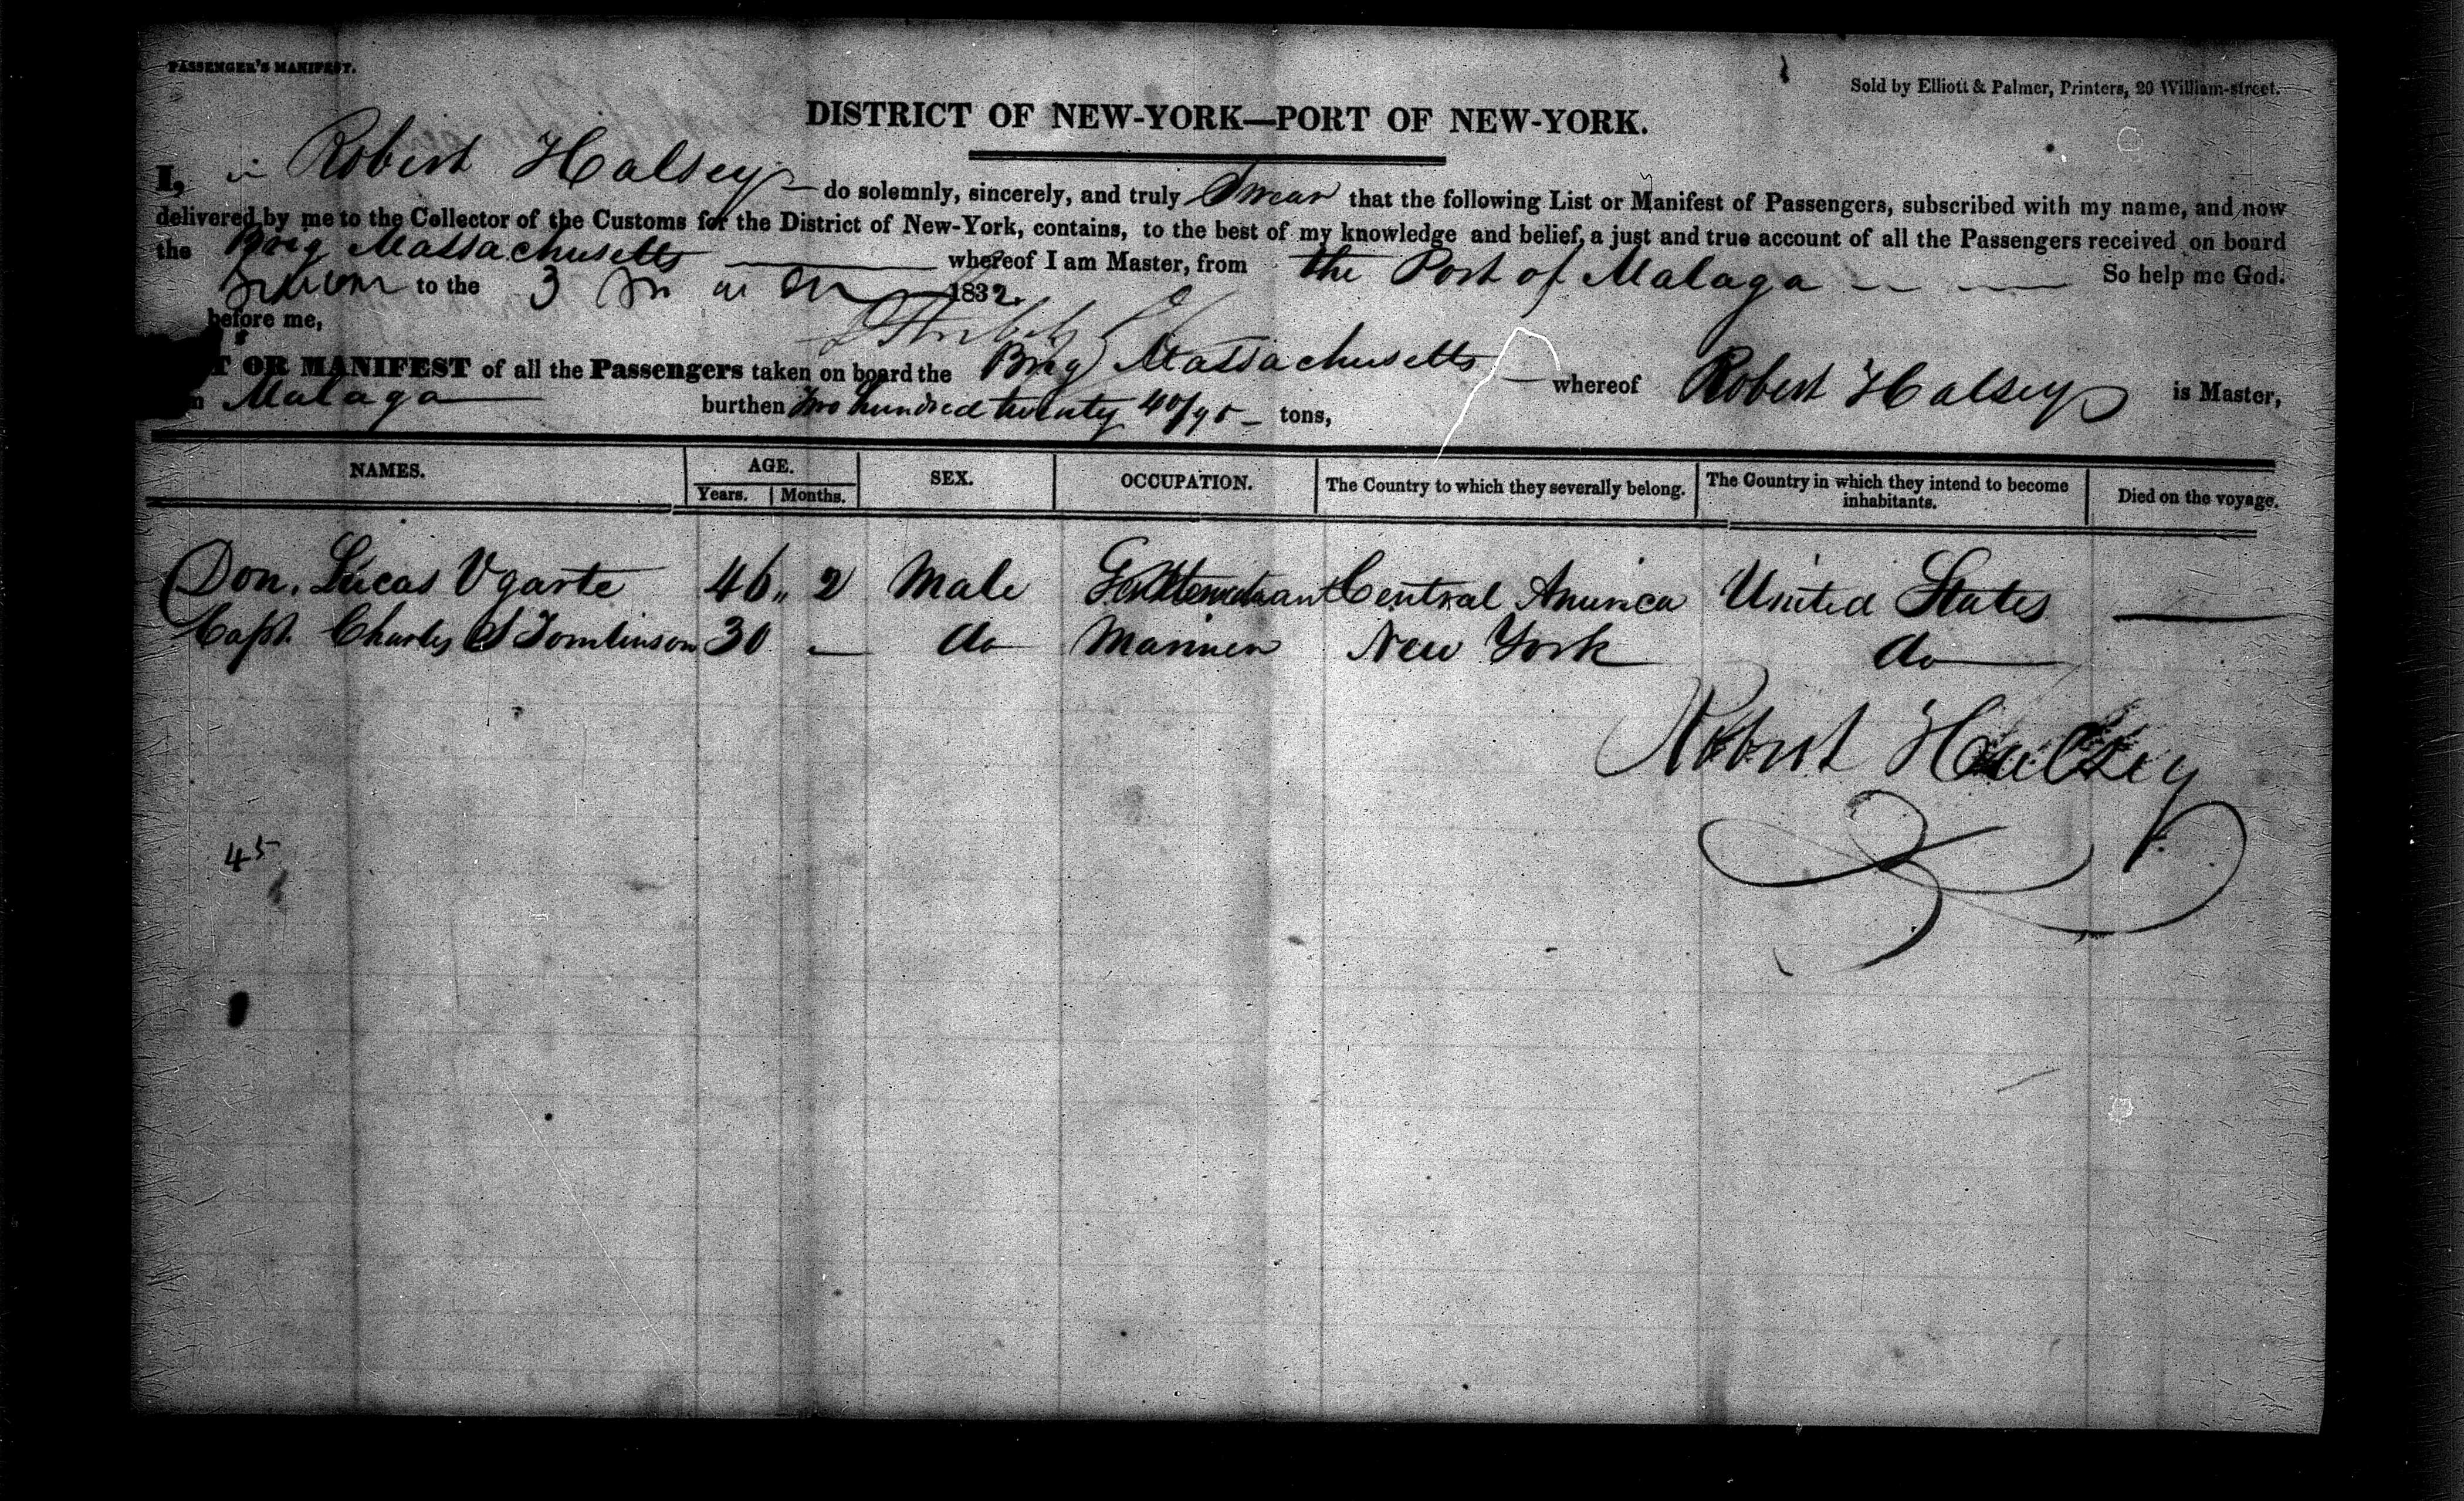 PASSENGER'S MANIFEST.
Sold by Elliott & Palmer, Printers, 20 William-street.
DISTRICT OF NEW-YORK—PORT OF NEW-YORK.
I, Robert Halsey do solemnly, sincerely, and truly Swear that the following List or Manifest of Passengers, subscribed with my name, and now
delivered by me to the Collector of the Customs for the District of New-York, contains, to the best of my knowledge and belief, a just and true account of all the Passengers received on board
the Brig Massachusetts whereof I am Master, from the Port of Malaga So help me God.
Sworn to the 3 1832.
before me,
T OR MANIFEST of all the Passengers taken on board the Brig Massachusetts whereof Robert Halsey is Master,
Malaga burthen Two hundred twenty 40/95 tons,
NAMES. AGE. SEX. OCCUPATION. The Country to which they severally belong. The Country in which they intend to become inhabitants. Died on the voyage.
Years. Months.
Don. Lucas Ugarte 46 " 2 Male Central America United States —
Capt. Charles S Tomlinson 30 — do Mariner New York do
Robert Halsey
45